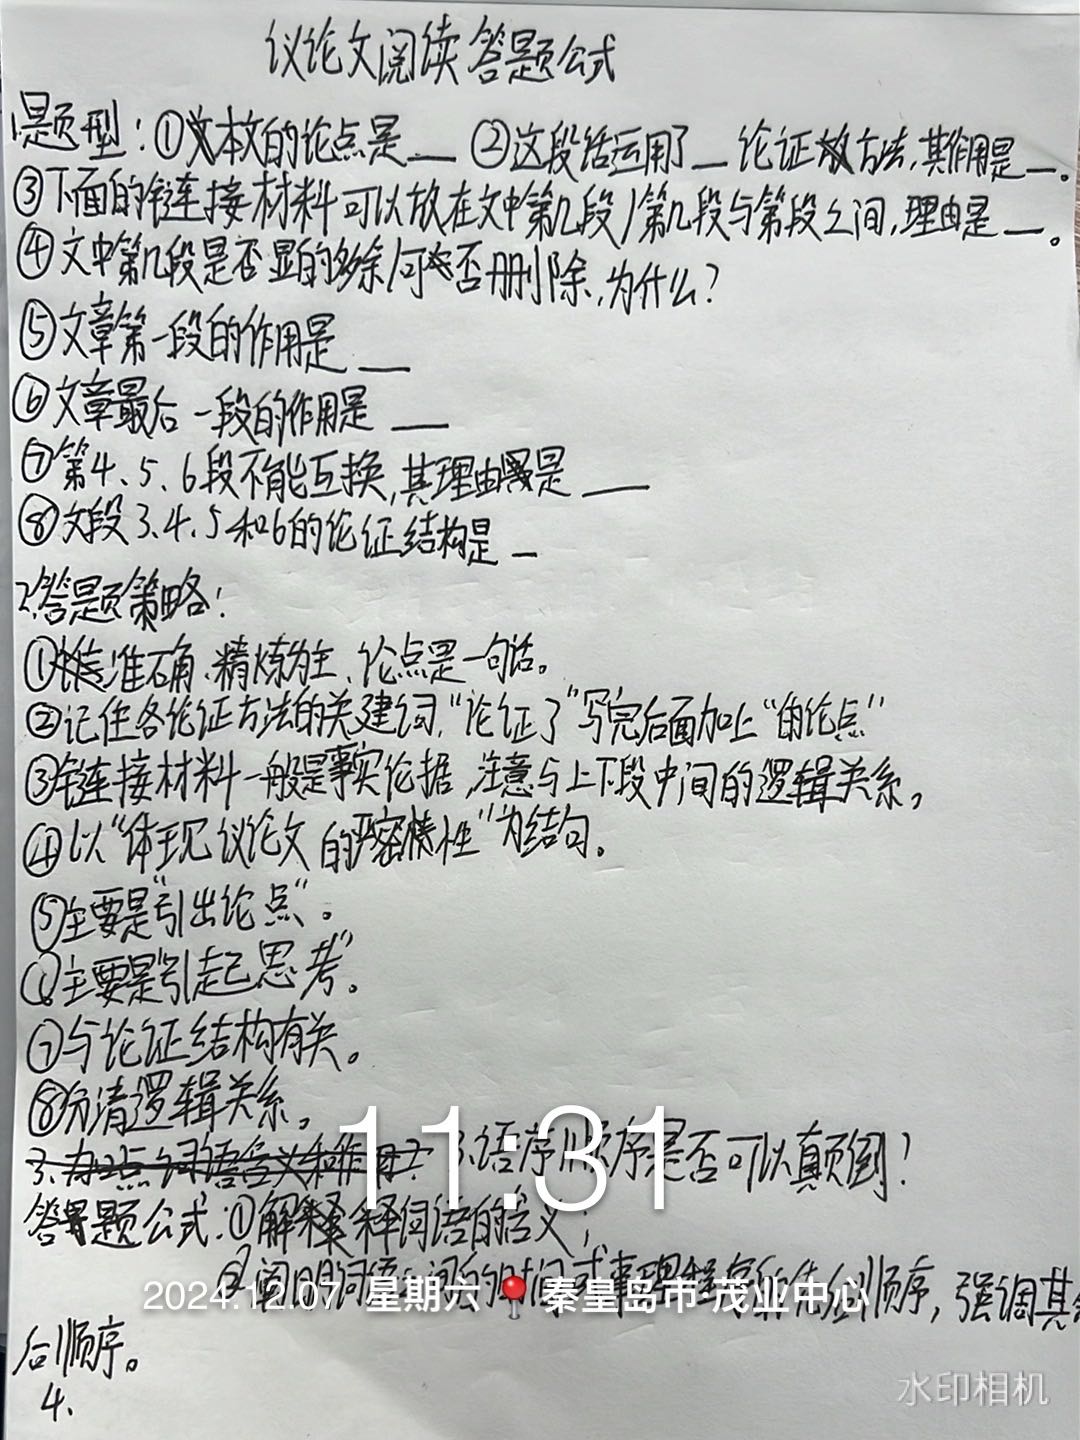 议论文阅读答题公式
1.题型:①本文的论点是__ ②这段话运用了__论证方法,其作用是__。
③下面的链接材料可以放在文中第几段/第几段与第段之间,理由是__。
④文中第几段是否显的多余/可否删除,为什么?
⑤文章第一段的作用是__
⑥文章最后一段的作用是__
⑦第4、5、6段不能互换,其理由是__
⑧文段3、4、5和6的论证结构是__
2.答题策略:
①准确、精炼为主、论点是一句话。
②记住各论证方法的关建词,“论证了”写完后面加上“的论点”
③链接材料一般是事实论据,注意与上下段中间的逻辑关系,
④以“体现议论文的严密性”为结句。
⑤主要是“引出论点”。
⑥主要是“引起思考”。
⑦与论证结构有关。
⑧分清逻辑关系。
3.语序顺序是否可以颠倒?
11:31
答题公式:①解释词语的含义;
②阐明词语之间的时间或事理顺序,强调其
2024.12.07 星期六 秦皇岛市·茂业中心
后顺序。
水印相机
4.